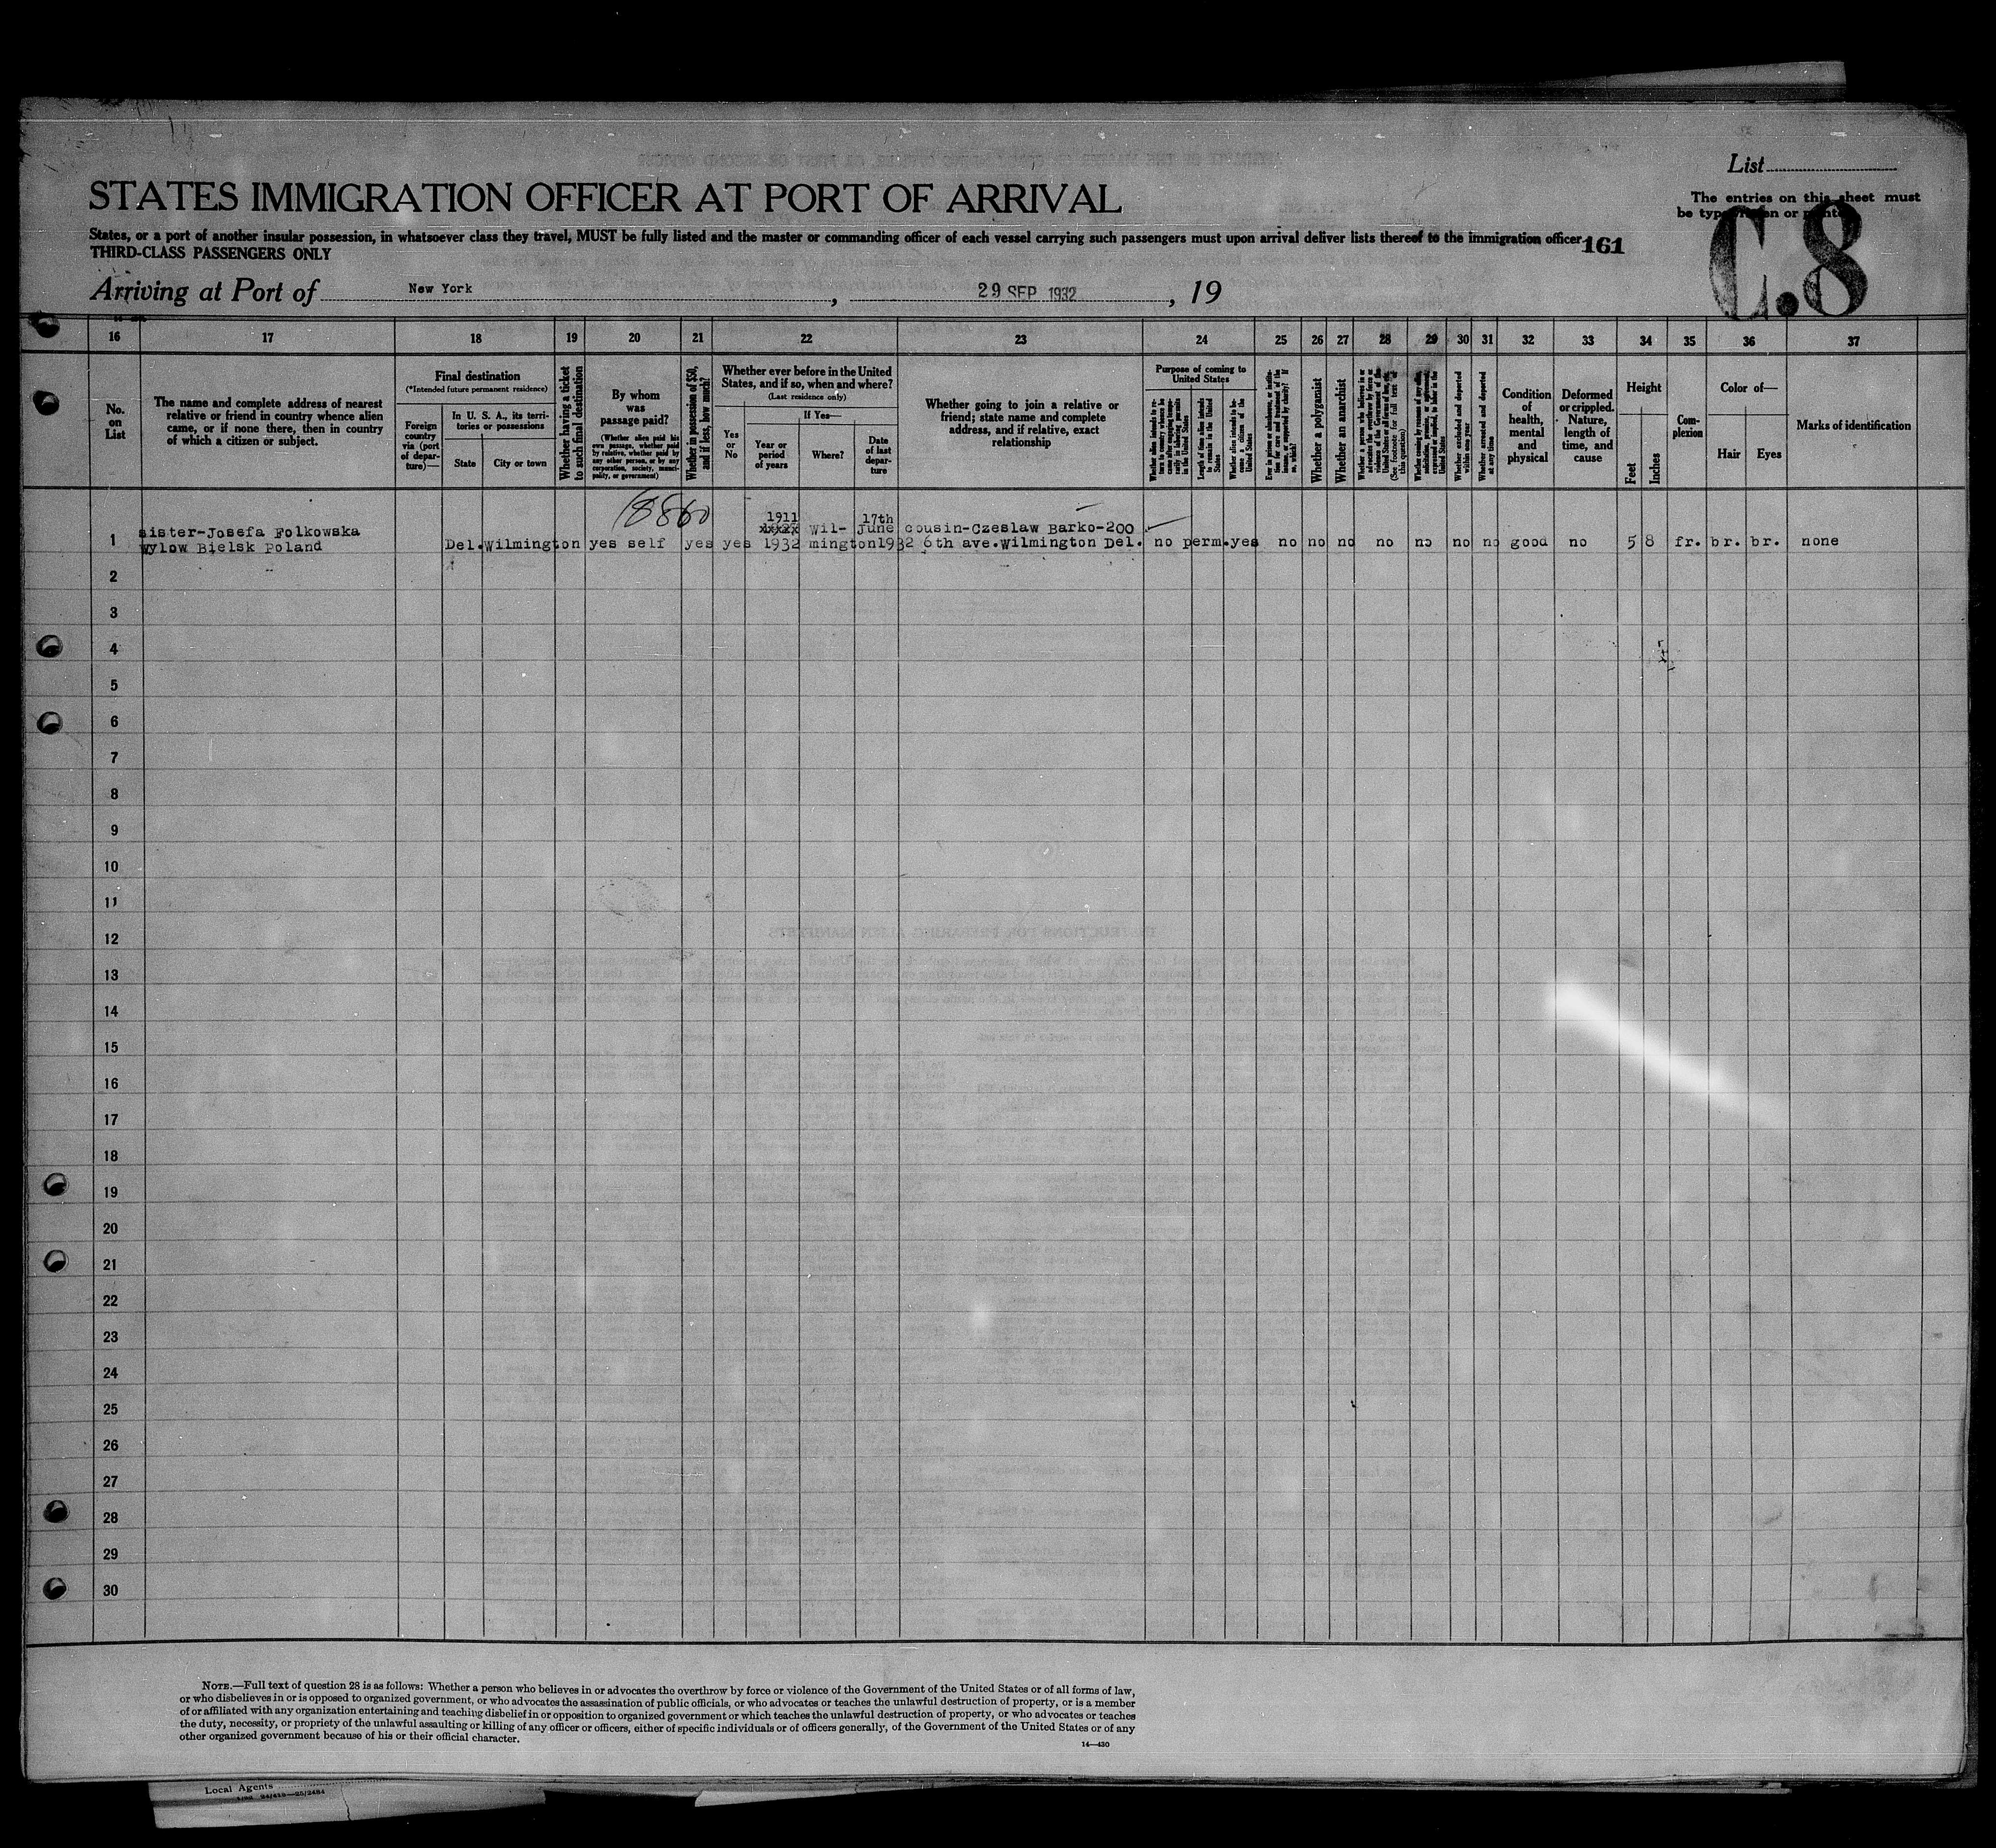 List
The entries on this sheet must
be typewritten or printed
C.8
STATES IMMIGRATION OFFICER AT PORT OF ARRIVAL
States, or a port of another insular possession, in whatsoever class they travel, MUST be fully listed and the master or commanding officer of each vessel carrying such passengers must upon arrival deliver lists thereof to the immigration officer
161
THIRD-CLASS PASSENGERS ONLY
Arriving at Port of New York, 29 SEP 1932, 19
16 17 18 19 20 21 22 23 24 25 26 27 28 29 30 31 32 33 34 35 36 37
No.
on
List
The name and complete address of nearest
relative or friend in country whence alien
came, or if none there, then in country
of which a citizen or subject.
Final destination
(*Intended future permanent residence)
Foreign
country
via (port
of depar-
ture)—
In U. S. A., its terri-
tories or possessions
State
City or town
Whether having a ticket
to such final destination
By whom
was
passage paid?
(Whether alien paid his
own passage, whether paid
by relative, whether paid by
any other person, or by any
corporation, society, munici-
pality, or government)
Whether in possession of $50,
and if less, how much?
Whether ever before in the United
States, and if so, when and where?
(Last residence only)
Yes
or
No
If Yes—
Year or
period
of years
Where?
Date
of last
depar-
ture
Whether going to join a relative or
friend; state name and complete
address, and if relative, exact
relationship
Purpose of coming to
United States
Length of time alien intends
to remain in the United
States
Whether alien intends to be-
come a citizen of the
United States
Whether a polygamist
Whether an anarchist
(See footnote for full text of
this question)
Whether arrested and deported
at any time
Condition
of
health,
mental
and
physical
Deformed
or crippled.
Nature,
length of
time, and
cause
Height
Feet
Inches
Com-
plexion
Color of—
Hair
Eyes
Marks of identification
18860
1911 17th
sister-Josefa Folkowska Wil- June cousin-Czeslaw Barko-200
1 Wylow Bielsk Poland Del. Wilmington yes self yes yes 1932 mington 1932 6th ave. Wilmington Del. no perm. yes no no no no no no no good no 5 8 fr. br. br. none
2
3
4
5
6
7
8
9
10
11
12
13
14
15
16
17
18
19
20
21
22
23
24
25
26
27
28
29
30
NOTE.—Full text of question 28 is as follows: Whether a person who believes in or advocates the overthrow by force or violence of the Government of the United States or of all forms of law,
or who disbelieves in or is opposed to organized government, or who advocates the assassination of public officials, or who advocates or teaches the unlawful destruction of property, or is a member
of or affiliated with any organization entertaining and teaching disbelief in or opposition to organized government or which teaches the unlawful destruction of property, or who advocates or teaches
the duty, necessity, or propriety of the unlawful assaulting or killing of any officer or officers, either of specific individuals or of officers generally, of the Government of the United States or of any
other organized government because of his or their official character.
14—430
Local Agents